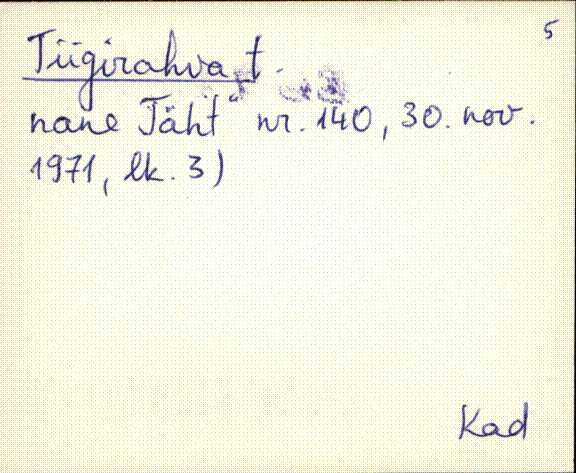 5
Tiigirahva t.
nane Täht" nr. 140, 30. nov.
1971, lk. 3)
Kad